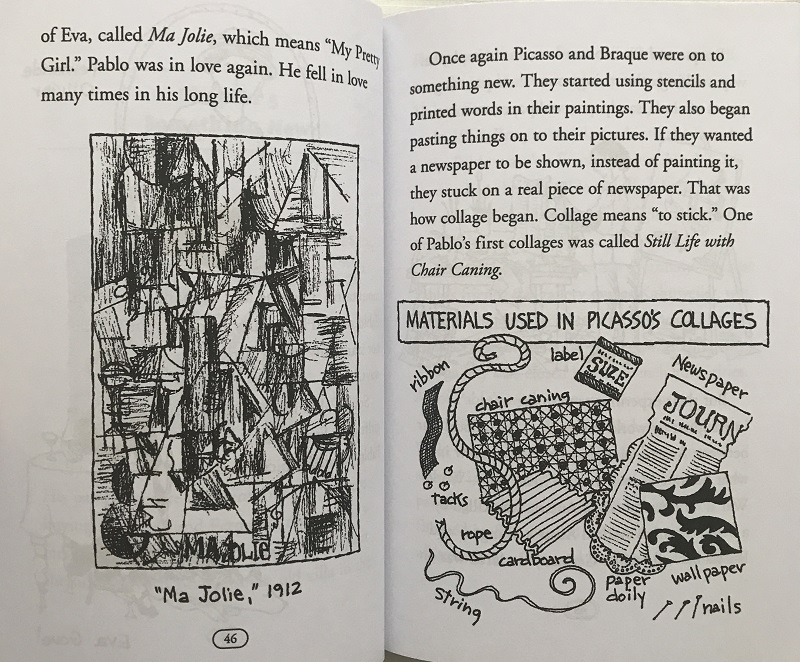 of Eva, called Ma Jolie, which means “My Pretty
Girl.” Pablo was in love again. He fell in love
many times in his long life.
MA JOLIE
"Ma Jolie," 1912
46
Once again Picasso and Braque were on to
something new. They started using stencils and
printed words in their paintings. They also began
pasting things on to their pictures. If they wanted
a newspaper to be shown, instead of painting it,
they stuck on a real piece of newspaper. That was
how collage began. Collage means “to stick.” One
of Pablo’s first collages was called Still Life with
Chair Caning.
MATERIALS USED IN PICASSO'S COLLAGES
ribbon
label
SUZE
Newspaper
JOURN
chair caning
tacks
rope
cardboard
string
paper
doily
wallpaper
nails